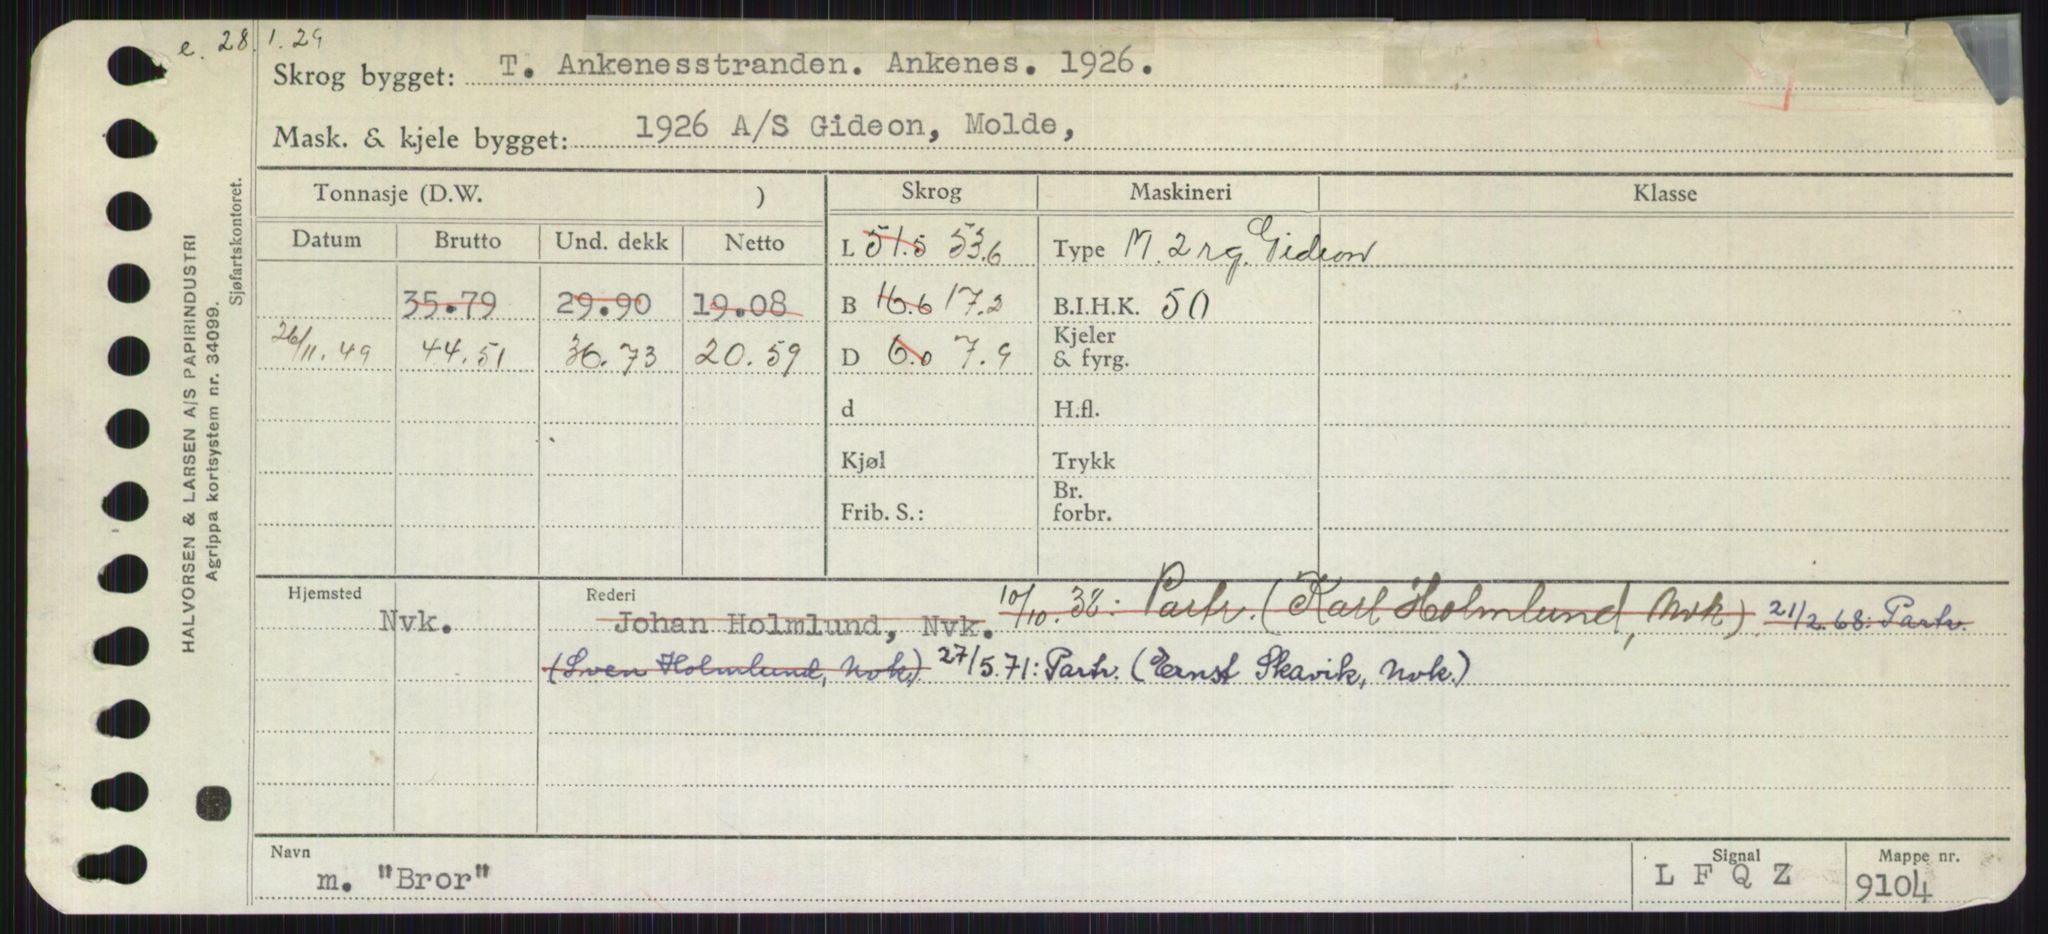 e. 28.1.29
Skrog bygget: T. Ankenesstranden. Ankenes. 1926.
Mask. & kjele bygget: 1926 A/S Gideon, Molde,
HALVORSEN & LARSEN A/S PAPIRINDUSTRI
Agrippa kortsystem nr. 34099.
Sjøfartskontoret.
Tonnasje (D.W. ) Skrog Maskineri Klasse
Datum Brutto Und. dekk Netto L 51.5 53.6 Type M. 2 rg. Gideon
35.79 29.90 19.08 B 16.6 17.2 B.I.H.K. 50
26/11.49 44.51 36.73 20.59 D 6.0 7.9 Kjeler
& fyrg.
d H.fl.
Kjøl Trykk
Frib. S.: Br.
forbr.
Hjemsted Rederi
Nvk. Johan Holmlund, Nvk. 10/10.38: Partr. (Karl Holmlund, Nvk) 21/2.68: Partr.
(Sven Holmlund, Nvk.) 27/5.71: Partr. (Ernst Skavik, Nvk.)
Navn Signal Mappe nr.
m. "Bror" L F Q Z 9104